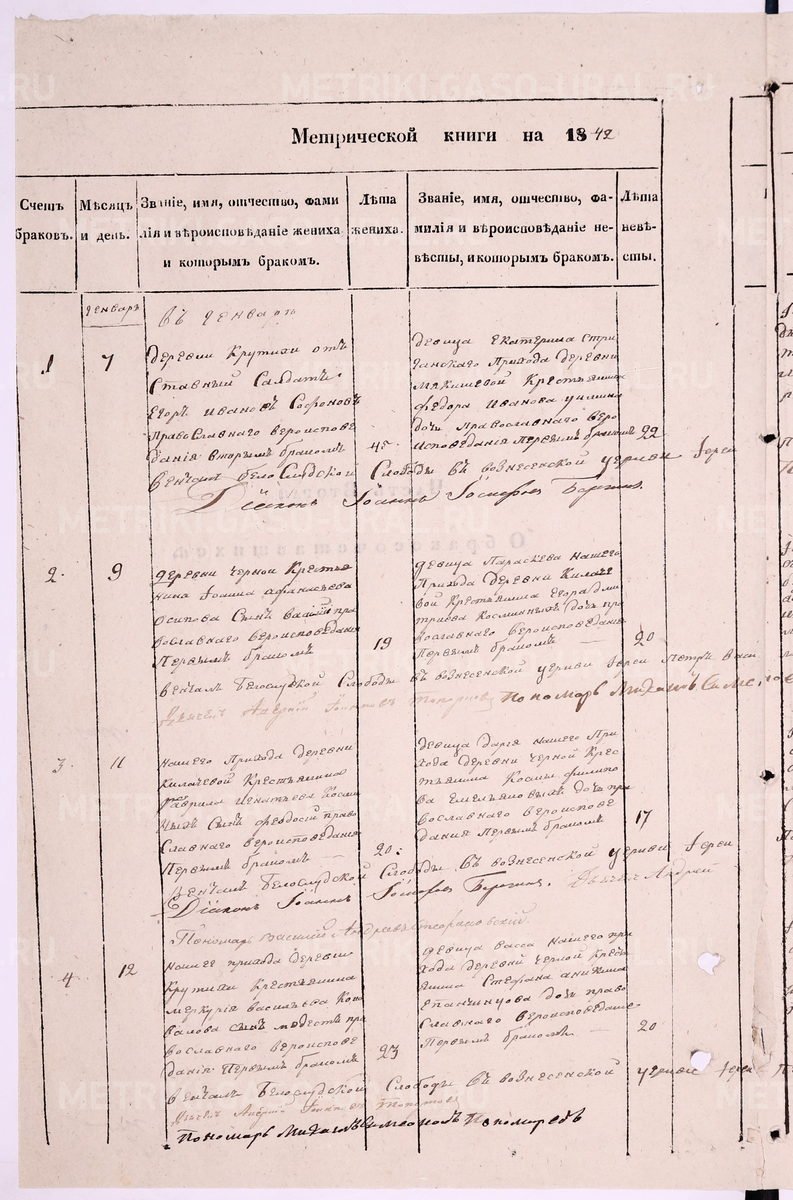 METRIKI.GASO-URAL.RU
Метрической книги на 1842
Счетъ браковъ.
Мѣсяцъ и день.
Званіе, имя, отчество, фами
лія и вѣроисповѣданіе жениха
и которымъ бракомъ.
Лѣта жениха.
Званіе, имя, отчество, фа-
милія и вѣроисповѣданіе не-
вѣсты, и которымъ бракомъ.
Лѣта невѣ-
сты.
Генварь
Въ Генварѣ
1 7
Деревни Крутихи отъ
ставный Салдатъ
Егоръ Ивановъ Софоновъ
Православнаго вероиспове
данія вторымъ бракомъ
45
Девица Екатерина Стри
ганскаго Прихода деревни
Мякишевой Крестьянина
Федора Иванова
дочь православнаго веро
исповеданія первымъ бракомъ
22
Венчалъ Белослудской Слободы въ вознесенской церкви Іерей
Діаконъ Іоаннъ
2. 9
Деревни Черной Кресть
нина Іоанна Афанасьева
Осипова Сынъ Василій пра
вославнаго вероисповеданія
Первымъ бракомъ
19
Девица Параскева нашего
Прихода деревни Килаче
вой Крестьянина Егора Дми
тріева Косминыхъ дочь пра
вославнаго вероисповеданія
Первымъ бракомъ
20
Венчалъ Белослудской Слободы въ вознесенской церкви Іерей Петръ
Дьячекъ Андрей Пономарь Михаилъ
3. 11
Нашего Прихода деревни
Килачевой Крестьянина
Гаврила Игнатьева Косми
ныхъ Сынъ Феодосій право
славнаго вероисповеданія
Первымъ бракомъ
20
Девица Дарія нашего При
хода деревни Черной Крес
тьянина Космы Филипо
ва Емельяновыхъ дочь пра
вославнаго вероиспове
данія Первымъ бракомъ
17
Венчалъ Белослудской Слободы въ вознесенской церкви Іерей
Діаконъ Іоаннъ Дьячекъ Андрей
Пономарь Василій
4 12
Нашего прихода деревни
Крутихи Крестьянина
Меркурія Васильева Коно
валова сынъ Модестъ пра
вославнаго вероиспове
данія Первымъ бракомъ
23
Девица Васса нашего при
хода деревни Черной Кресть
янина Стефана Аникина
Епанчинцова дочь право
славнаго вероисповеданія
Первымъ бракомъ
20
Венчалъ Белослудской Слободы въ вознесенской церкви Іерей
Дьячекъ Андрей
Пономарь Михаилъ Пономаревъ